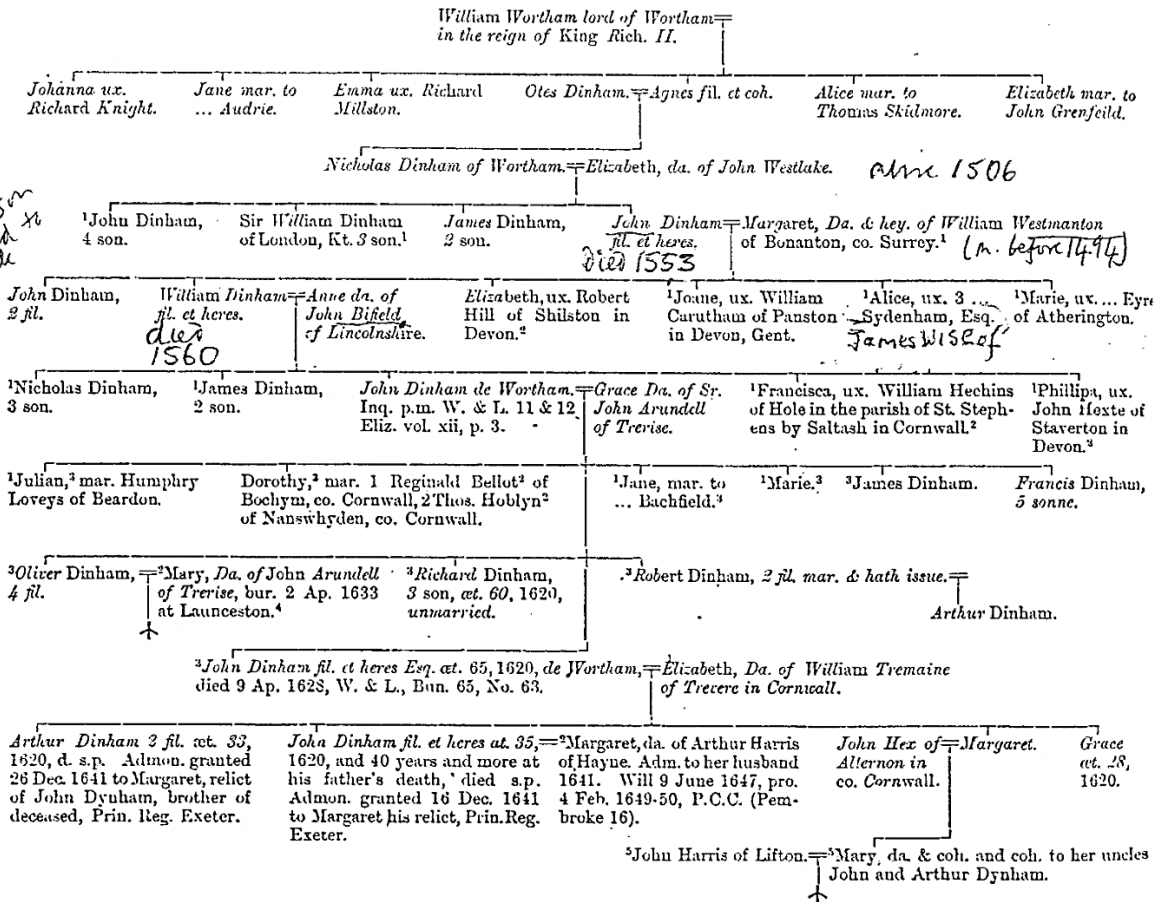 William Wortham lord of Wortham
in the reign of King Rich. II.
Johanna ux.
Richard Knight.
Jane mar. to
... Audrie.
Emma ux. Richard
Millston.
Otes Dinham. Agnes fil. et coh.
Alice mar. to
Thomas Skidmore.
Elizabeth mar. to
John Grenfeild.
Nicholas Dinham of Wortham. Elizabeth, da. of John Westlake.
alive 1506
¹John Dinham,
4 son.
Sir William Dinham
of London, Kt. 3 son.¹
James Dinham,
2 son.
John Dinham
fil. et heres.
died 1553
Margaret, Da. & hey. of William Westmanton
of Bonanton, co. Surrey.¹
(m. before 1494)
John Dinham,
2 fil.
William Dinham
fil. et heres.
died
1560
Anne da. of
John Bifield
of Lincolnshire.
Elizabeth, ux. Robert
Hill of Shilston in
Devon.²
¹Joane, ux. William
Carutham of Panston
in Devon, Gent.
¹Alice, ux. 3 ...
Sydenham, Esq.
James
¹Marie, ux. ... Eyre
of Atherington.
¹Nicholas Dinham,
3 son.
¹James Dinham,
2 son.
John Dinham de Wortham.
Inq. p.m. W. & L. 11 & 12
Eliz. vol. xii, p. 3.
Grace Da. of Sr.
John Arundell
of Trerise.
¹Francisca, ux. William Hechins
of Hole in the parish of St. Steph-
ens by Saltash in Cornwall.²
¹Phillipa, ux.
John Hexte of
Staverton in
Devon.³
¹Julian,³ mar. Humphry
Loveys of Beardon.
Dorothy,³ mar. 1 Reginald Bellot² of
Bochym, co. Cornwall, 2 Thos. Hoblyn²
of Nanswhyden, co. Cornwall.
¹Jane, mar. to
... Bachfield.³
¹Marie.³
³James Dinham.
Francis Dinham,
5 sonne.
³Oliver Dinham,
4 fil.
²Mary, Da. of John Arundell
of Trerise, bur. 2 Ap. 1633
at Launceston.⁴
³Richard Dinham,
3 son, æt. 60, 1620,
unmarried.
³Robert Dinham, 2 fil. mar. & hath issue.
Arthur Dinham.
³John Dinham fil. et heres Esq. æt. 65, 1620, de Wortham,
died 9 Ap. 1628, W. & L., Bun. 65, No. 63.
Elizabeth, Da. of William Tremaine
of Trecere in Cornwall.
Arthur Dinham 2 fil. æt. 33,
1620, d. s.p. Admon. granted
26 Dec. 1641 to Margaret, relict
of John Dynham, brother of
deceased, Prin. Reg. Exeter.
John Dinham fil. et heres æt. 35,
1620, and 40 years and more at
his father's death, died s.p.
Admon. granted 16 Dec. 1641
to Margaret his relict, Prin. Reg.
Exeter.
²Margaret, da. of Arthur Harris
of Hayne. Adm. to her husband
1641. Will 9 June 1647, pro.
4 Feb. 1649-50, P.C.C. (Pem-
broke 16).
John Hex of
Alternon in
co. Cornwall.
Margaret.
Grace
æt. 28,
1620.
⁵John Harris of Lifton.
⁵Mary, da. & coh. and coh. to her uncles
John and Arthur Dynham.